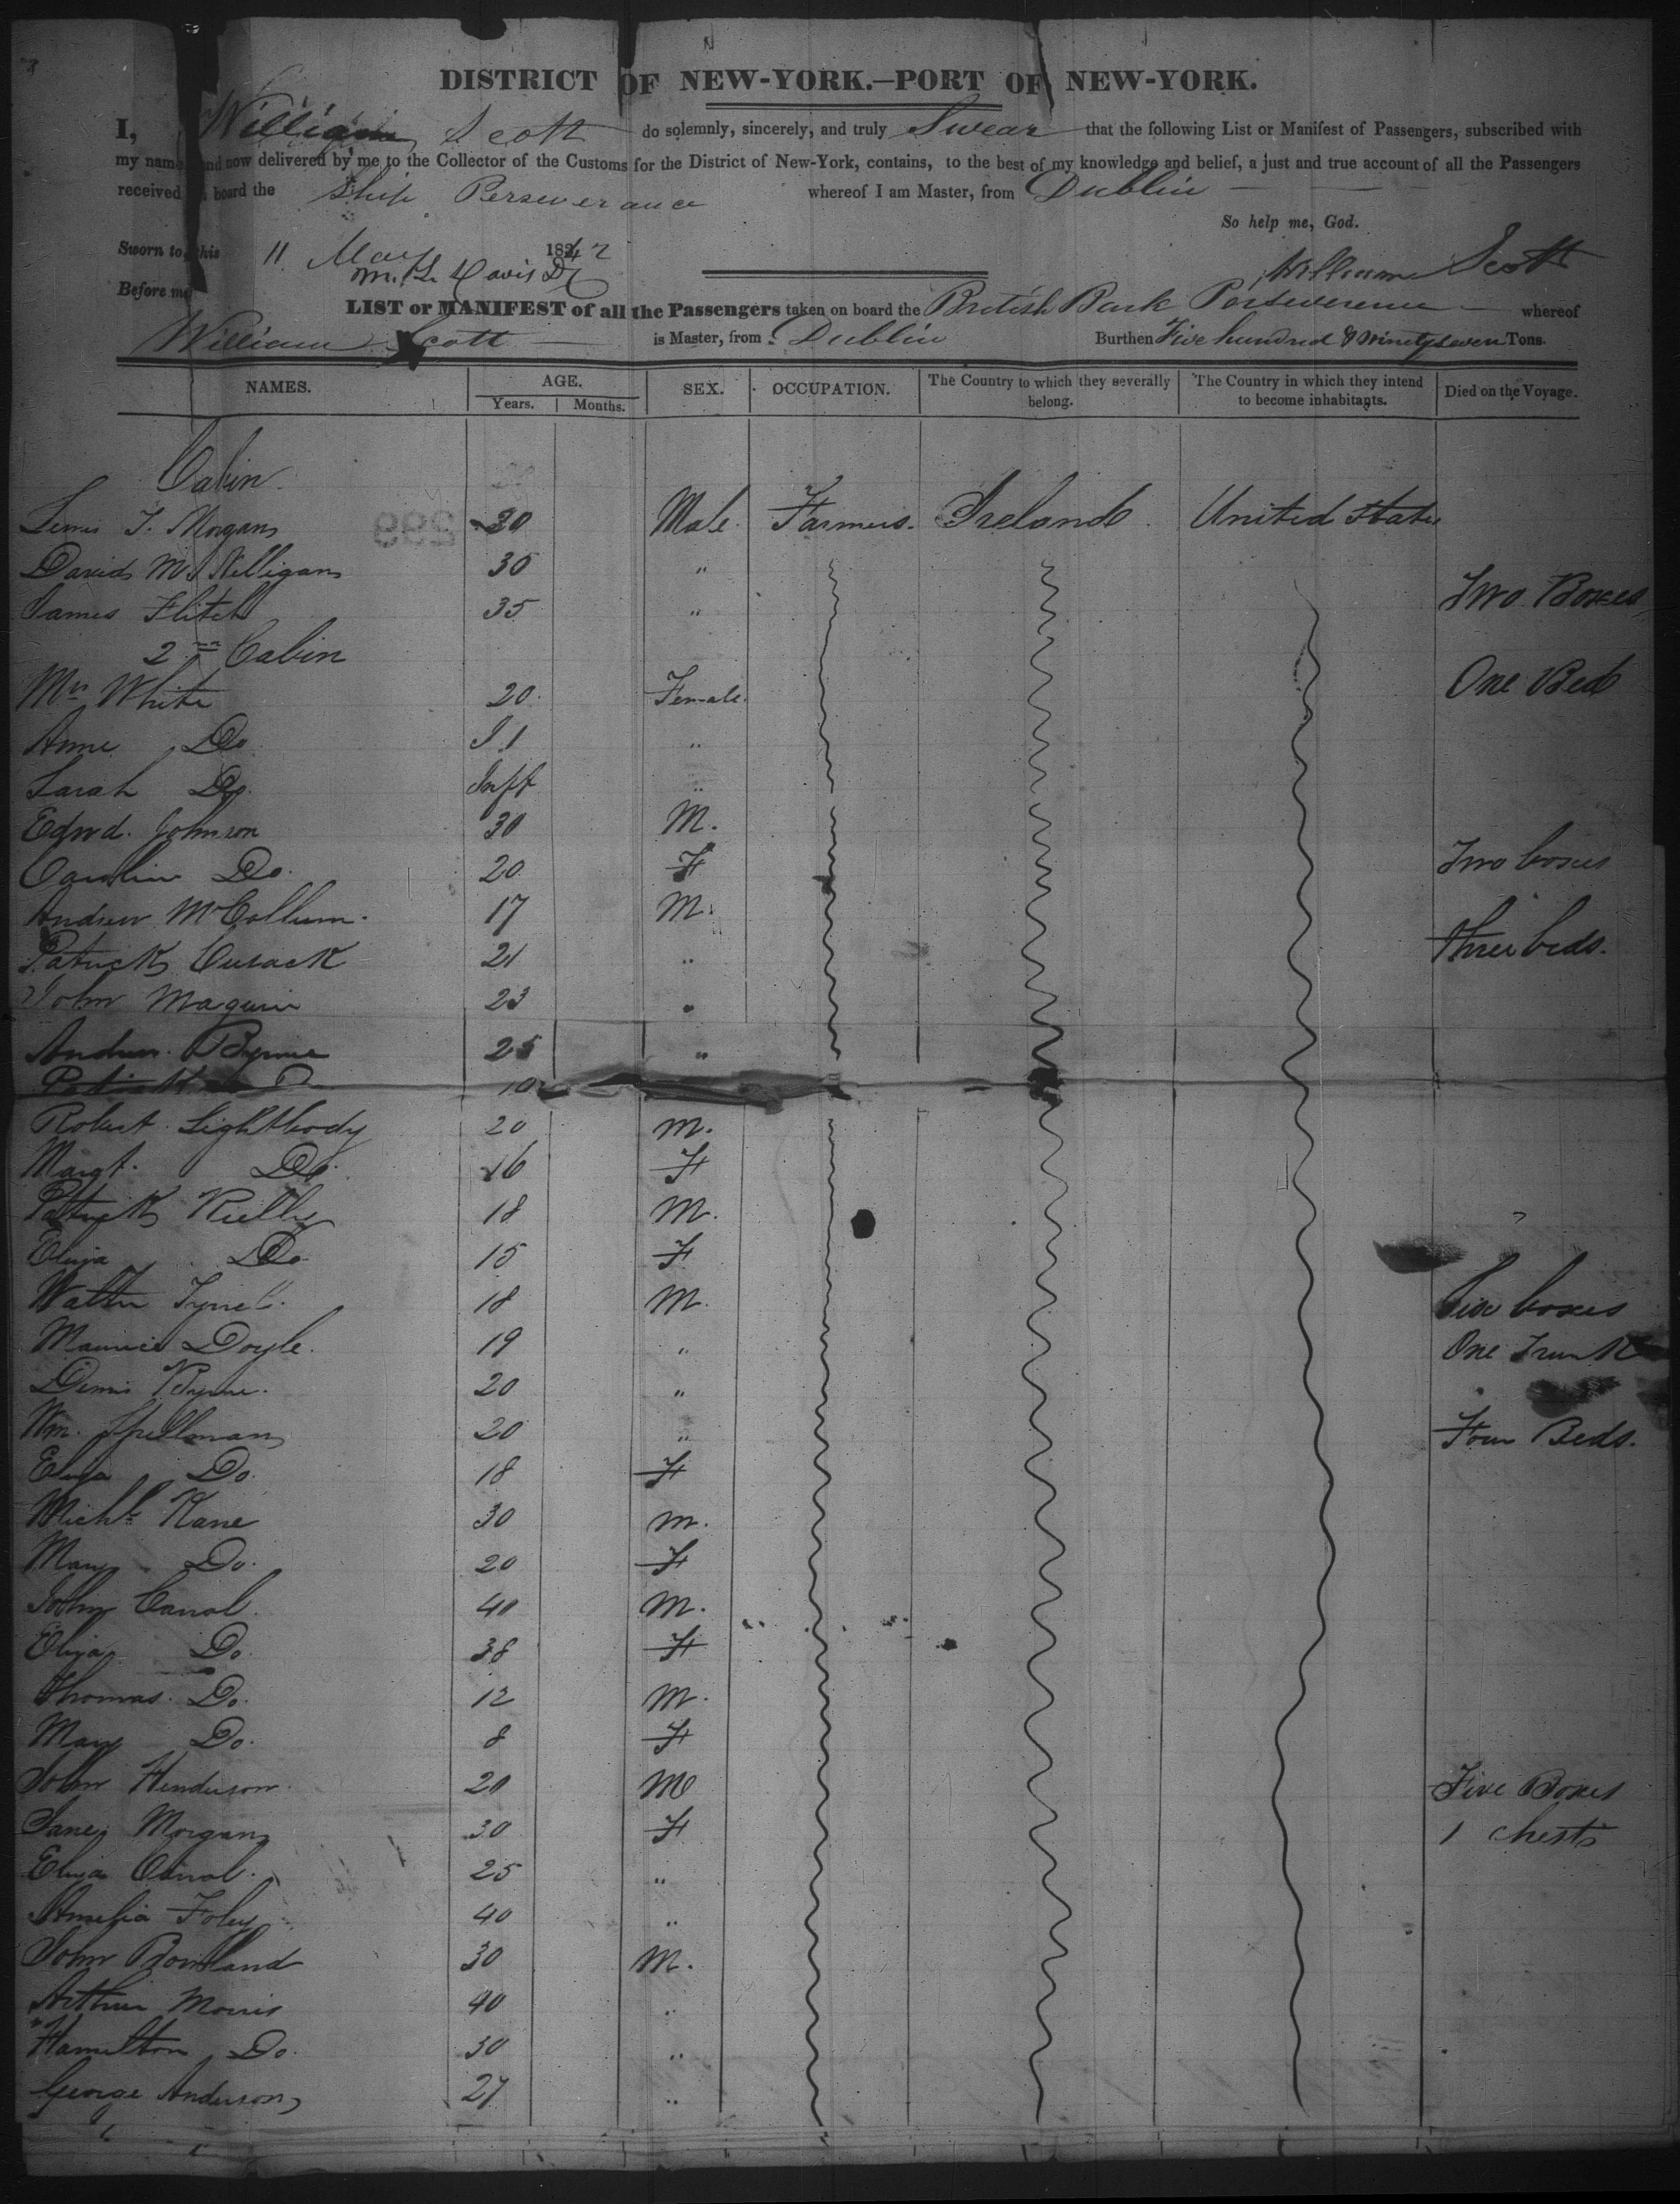 DISTRICT OF NEW-YORK.—PORT OF NEW-YORK.
I, William Scott do solemnly, sincerely, and truly Swear that the following List or Manifest of Passengers, subscribed with
my name and now delivered by me to the Collector of the Customs for the District of New-York, contains, to the best of my knowledge and belief, a just and true account of all the Passengers
received board the Ship Perseverance whereof I am Master, from Dublin
So help me, God.
Sworn to, this 11 May 1842
William Scott
Before me M. L. Davis
LIST or MANIFEST of all the Passengers taken on board the British Bark Perseverence whereof
William Scott is Master, from Dublin Burthen Five hundred & Ninety seven Tons.
NAMES. AGE. SEX. OCCUPATION. The Country to which they severally belong. The Country in which they intend to become inhabitants. Died on the Voyage.
Years. Months.
Cabin.
T. Morgan 30 Male Farmers. Ireland. United States
David 30 "
James Flitch 35 " Two Boxes
2nd Cabin
Mrs White 20 Female. One Bed
Anne Do "
Sarah Do. Inft "
Edwd. Johnson 30 M.
Caroline Do. 20 F Two boxes
Andrew McCollum. 17 M.
Patrick Cusack 21 " three beds.
John Maguire 23 "
Andrew Byrne 25 "
Patrick Do 10
Robert Lightbody 20 M.
Margt. Do. 16 F
Patrick Rielly 18 M.
Eliza Do. 15 F
Walter 18 M. Six boxes
Maurice Doyle. 19 " One Trunk
Denis Byrne. 20 "
Wm. Spellman 20 " Four Beds.
Eliza Do. 18 F
Michl. Kane 30 M.
Mary Do. 20 F
John Carrol. 40 M.
Eliza Do. 38 F
Thomas. Do. 12 M.
Mary Do. 8 F
John Henderson. 20 M Five Boxes
Jane Morgan 30 F 1 chest
Eliza Carrol. 25 "
Amelia Foley 40 "
John Rowland 30 M.
Arthur Morris 40 "
Hamilton Do. 30 "
George Anderson 27 "